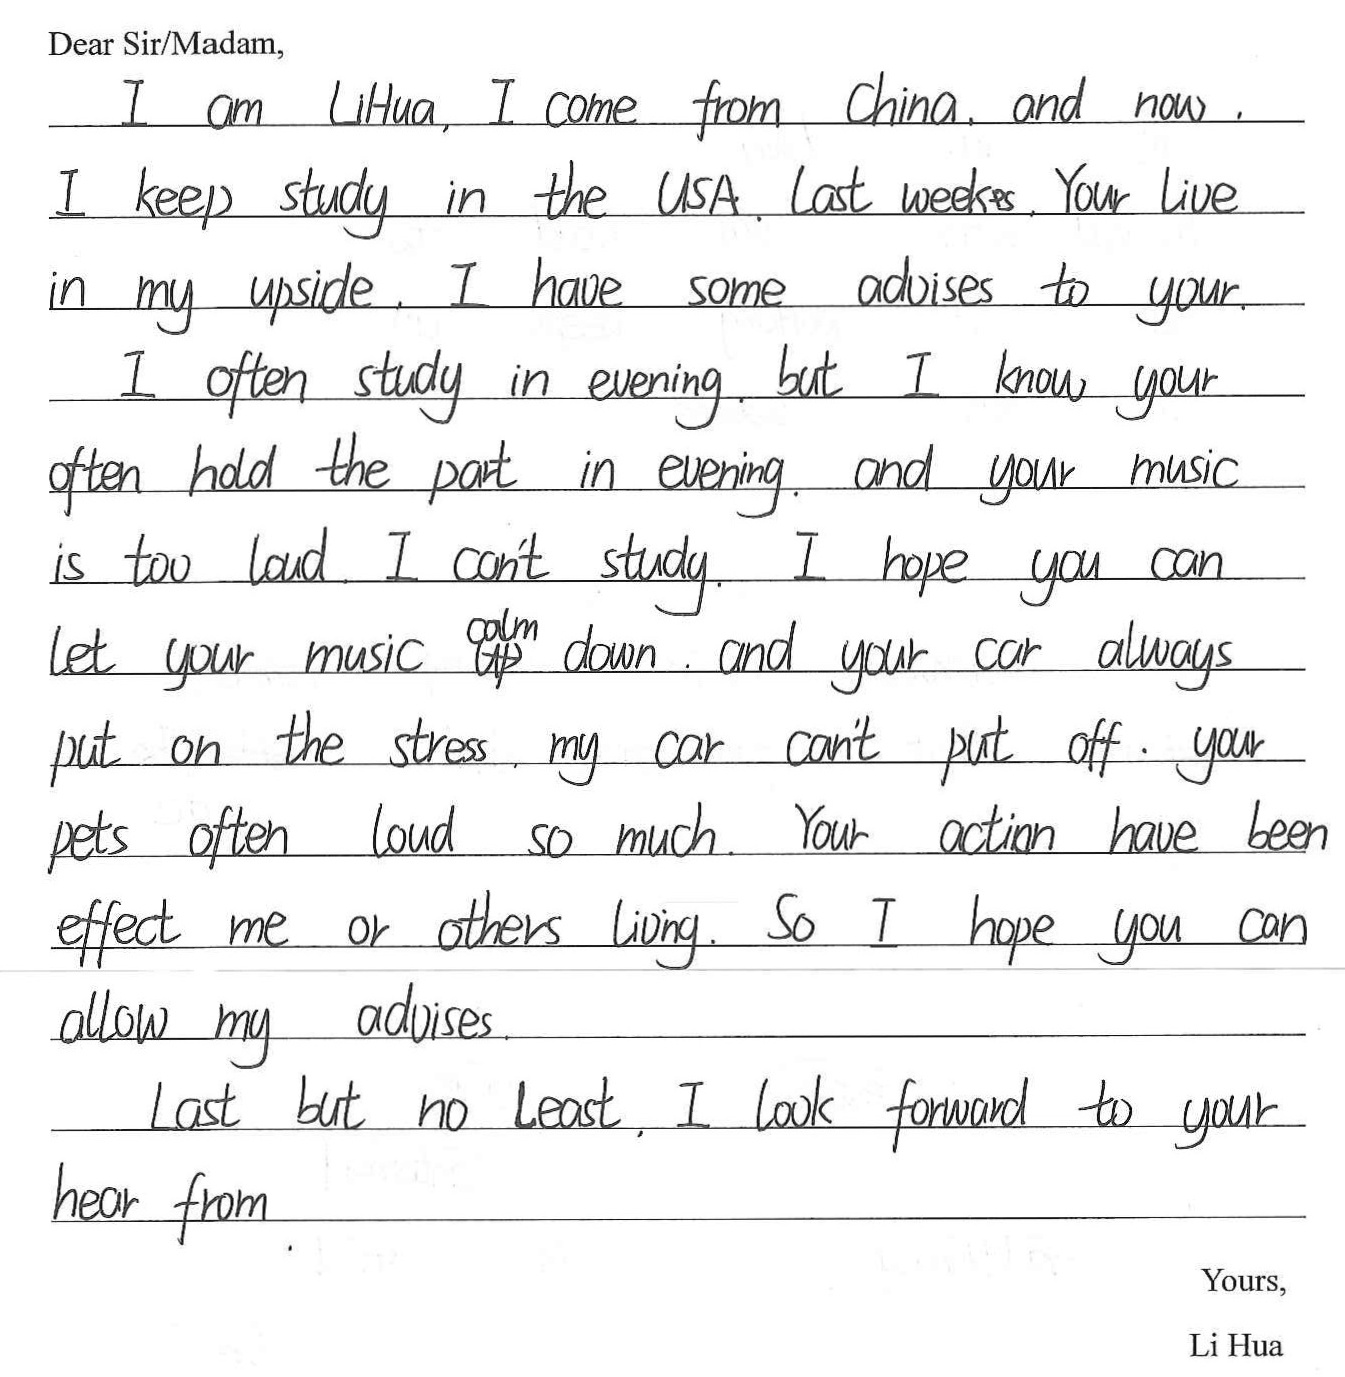 Dear Sir/Madam,
I am LiHua, I come from China. and now.
I keep study in the USA. Last weekes. Your live
in my upside. I have some advises to your.
I often study in evening. but I know your
often hold the part in evening. and your music
is too loud. I can't study. I hope you can
let your music calm down. and your car always
put on the stress. my car can't put off. your
pets often loud so much. Your action have been
effect me or others living. So I hope you can
allow my advises.
Last but no least, I look forward to your
hear from.
Yours,
Li Hua